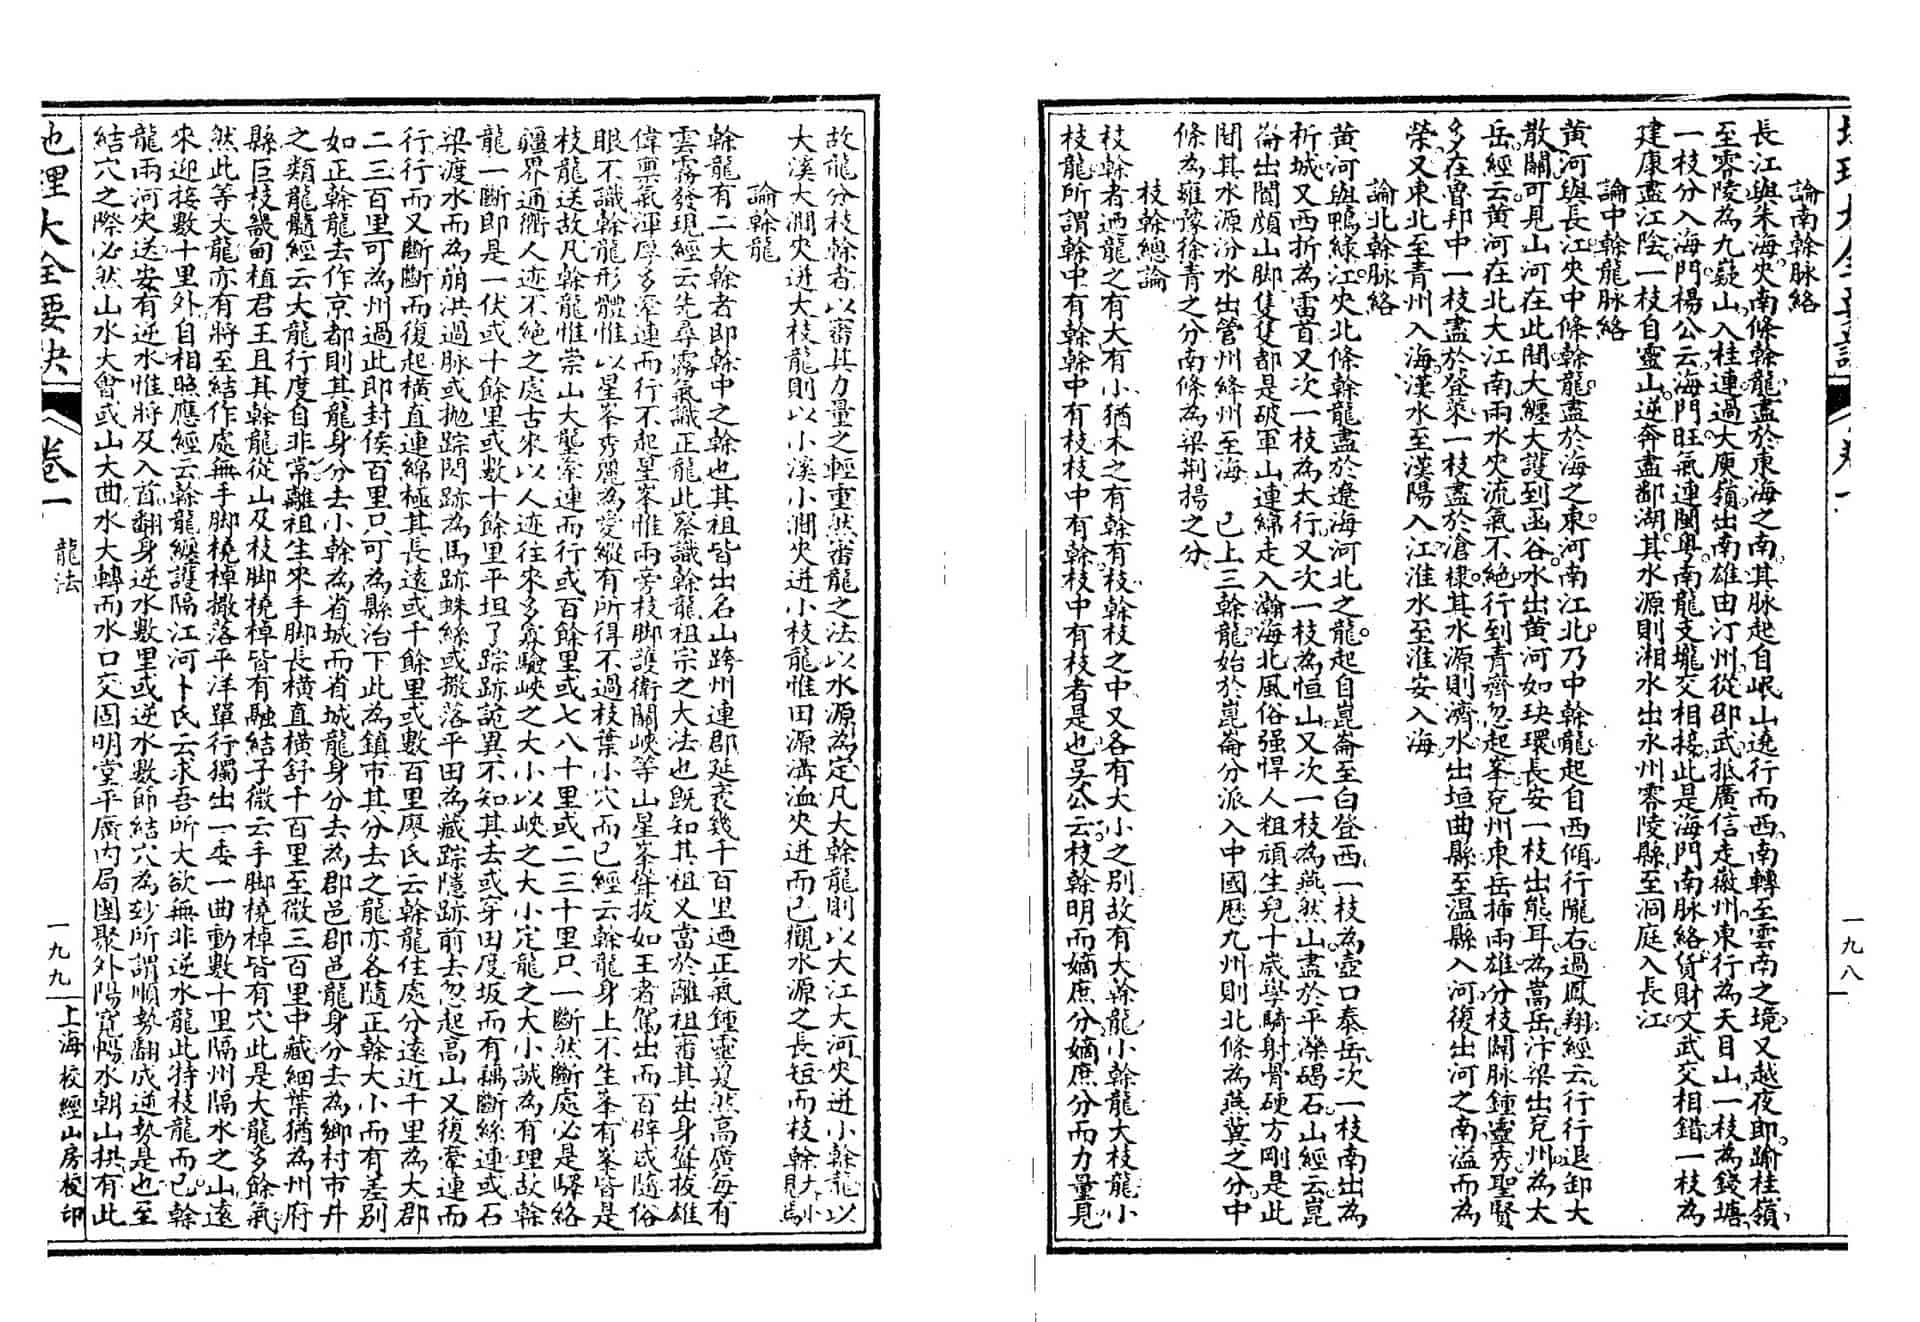 論南幹脉絡
長江與朱海夾南條幹龍盡於東海之南其脉起自岷山遶行而西南轉至雲南之境又越夜郎踰桂嶺
至零陵為九嶷山入桂連過大庾嶺出南雄由汀州從邵武抵廣信走徽州東行為天目山一枝為錢塘
一枝分入海門楊公云海門旺氣連閩粵南龍支壠交相接此是海門南脉絡貨財文武交相錯一枝為
建康盡江陰一枝自靈山逆奔盡鄱湖其水源則湘水出永州零陵縣至洞庭入長江
論中幹龍脉絡
黃河與長江夾中條幹龍盡於海之東河南江北乃中幹龍起自西傾行隴右過鳳翔經云行行退卸大
散關可見山河在此間大纏大護到函谷水出黃河如玦環長安一枝出熊耳為嵩岳汴梁出兗州為太
岳經云黃河在北大江南兩水夾流氣不絕行到青齊忽起峯兗州東岳揷兩雄分枝闢脉鍾靈秀聖賢
多在魯邦中一枝盡於登萊一枝盡於滄棣其水源則濟水出垣曲縣至温縣入河復出河之南溢而為
榮又東北至青州入海漢水至漢陽入江淮水至淮安入海
論北幹脉絡
黃河與鴨綠江夾北條幹龍盡於遼海河北之龍起自崑崙至白登西一枝為壺口泰岳次一枝南出為
析城又西折為雷首又次一枝為太行又次一枝為恒山又次一枝為燕然山盡於平灤碣石山經云崑
崙出闔頗山脚隻隻都是破軍山連綿走入瀚海北風俗强悍人粗頑生兒十歲學騎射骨硬方剛是此
間其水源汾水出管州絳州至海 已上三幹龍始於崑崙分派入中國歷九州則北條為燕冀之分中
條為雍豫徐青之分南條為梁荆揚之分
枝幹總論
枝幹者迺龍之有大有小猶木之有幹有枝幹枝之中又各有大小之別故有大幹龍小幹龍大枝龍小
枝龍所謂幹中有幹幹中有枝枝中有幹枝中有枝者是也吳公云枝幹明而嫡庶分嫡庶分而力量見
一九八
故龍分枝幹者以審其力量之輕重然審龍之法以水源為定凡大幹龍則以大江大河夾迸小幹龍以
大溪大澗夾迸大枝龍則以小溪小澗夾迸小枝龍惟田源溝洫夾迸而已觀水源之長短而枝幹大小見焉
論幹龍
幹龍有二大幹者即幹中之幹也其祖皆出名山跨州連郡延袤幾千百里迺正氣鍾靈敻然高廣每有
雲霧發現經云先尋霧氣識正龍此察識幹龍祖宗之大法也既知其祖又當於離祖審其出身聳拔雄
偉禀氣渾厚多牽連而行不起星峯惟兩旁枝脚護衛關峽等山星峯聳拔如王者駕出而百辟咸隨俗
眼不識幹龍形體惟以星峯秀麗為愛縱有所得不過枝葉小穴而已經云幹龍身上不生峯有峯皆是
枝龍送故凡幹龍惟崇山大壟牽連而行或百餘里或七八十里或二三十里只一斷然斷處必是驛絡
疆界通衢人迹不絕之處古來以人迹往來多寡驗峽之大小以峽之大小定龍之大小誠為有理故幹
龍一斷即是一伏或十餘里或數十餘里平坦了踪跡詭異不知其去或穿田度坂而有藕斷絲連或石
梁渡水而為崩洪過脉或拋踪閃跡為馬跡蛛絲或撒落平田為藏踪隱跡前去忽起高山又復牽連而
行行而又斷斷而復起橫直連綿極其長遠或千餘里或數百里廖氏云幹龍住處分遠近千里為大郡
二三百里可為州過此即封侯百里只可為縣治下此為鎮市其分去之龍亦各隨正幹大小而有差別
如正幹龍去作京都則其龍身分去小幹為省城而省城龍身分去為郡邑郡邑龍身分去為鄉村市井
之類龍髓經云大龍行度自非常離祖生來手脚長橫直橫舒千百里至微三百里中藏細葉猶為州府
縣巨枝畿甸植君王且其幹龍從山及枝脚橈棹皆有融結子微云手脚橈棹皆有穴此是大龍多餘氣
然此等大龍亦有將至結作處無手脚橈棹撒落平洋單行獨出一委一曲動數十里隔州隔水之山遠
來迎接數十里外自相照應經云幹龍纏護隔江河卜氏云求吾所大欲無非逆水龍此特枝龍而已幹
龍兩河夾送安有逆水惟將及入首翻身逆水數里或逆水數節結穴為玅所謂順勢翻成逆勢是也至
結穴之際必然山水大會或山大曲水大轉而水口交固明堂平廣內局團聚外陽寬暢水朝山拱有此
地理大全要訣 卷一 龍法 一九九 上海校經山房校印